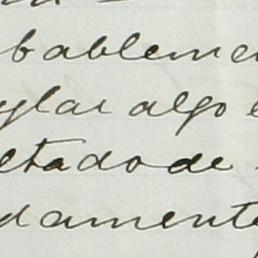 bableme
ylar algo e
etado de
damente